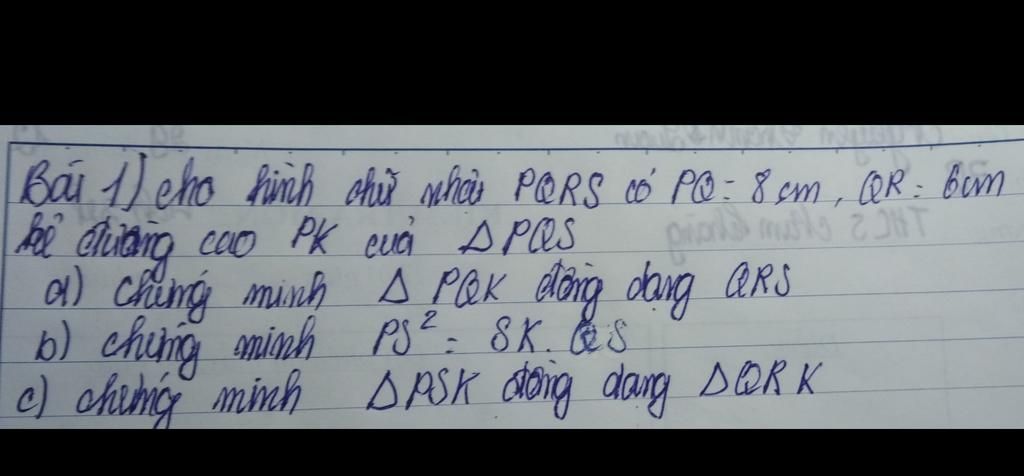 Bài 1) cho hình chữ nhật PQRS có PQ = 8 cm, QR = 6cm
kẻ đường cao PK của Δ PQS
a) chứng minh Δ PQK đồng dạng QRS
b) chứng minh PS² = SK. QS
c) chứng minh Δ PSK đồng dạng Δ QRK